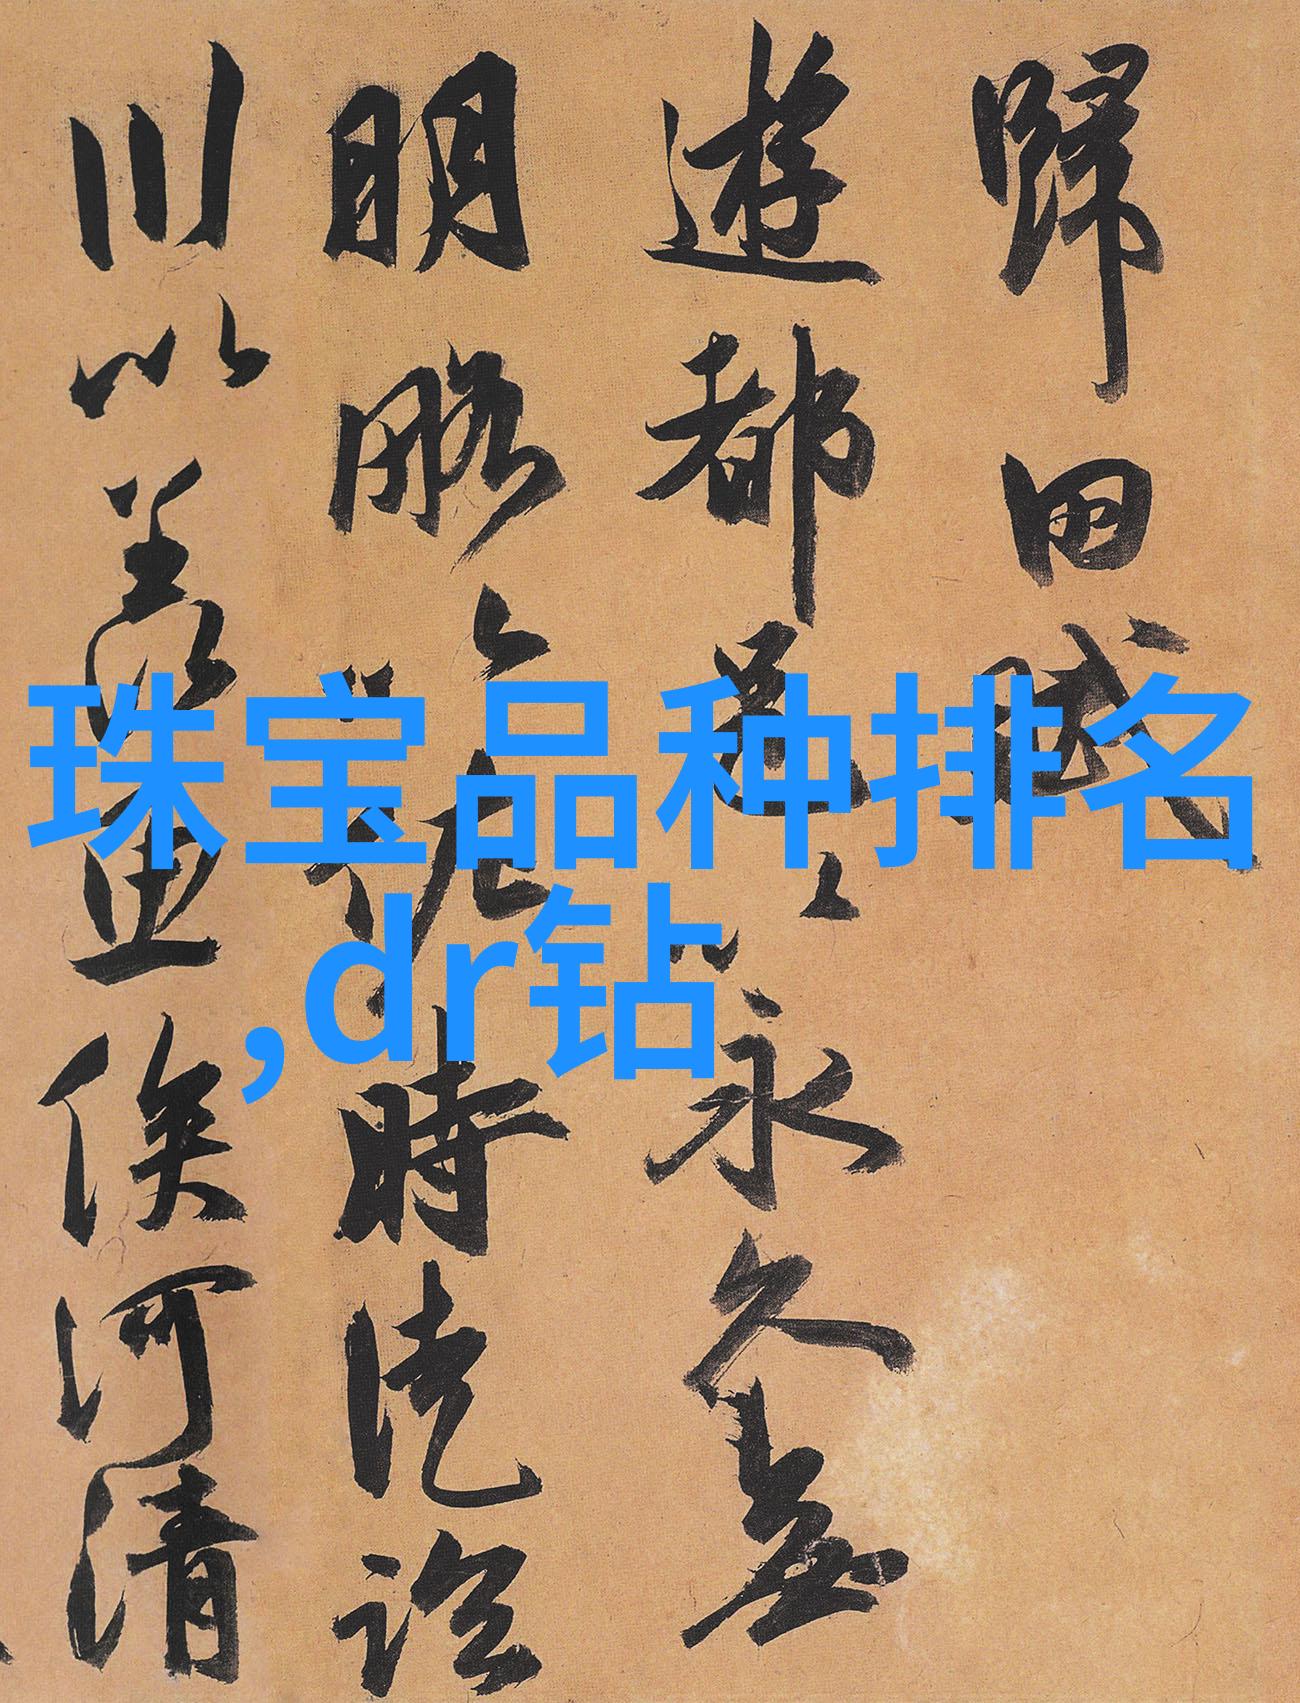 歸田賦
遊都邑以永久無
明略以佐時徒臨
川以羨魚俟河清
珠宝品种排名
,dr钻